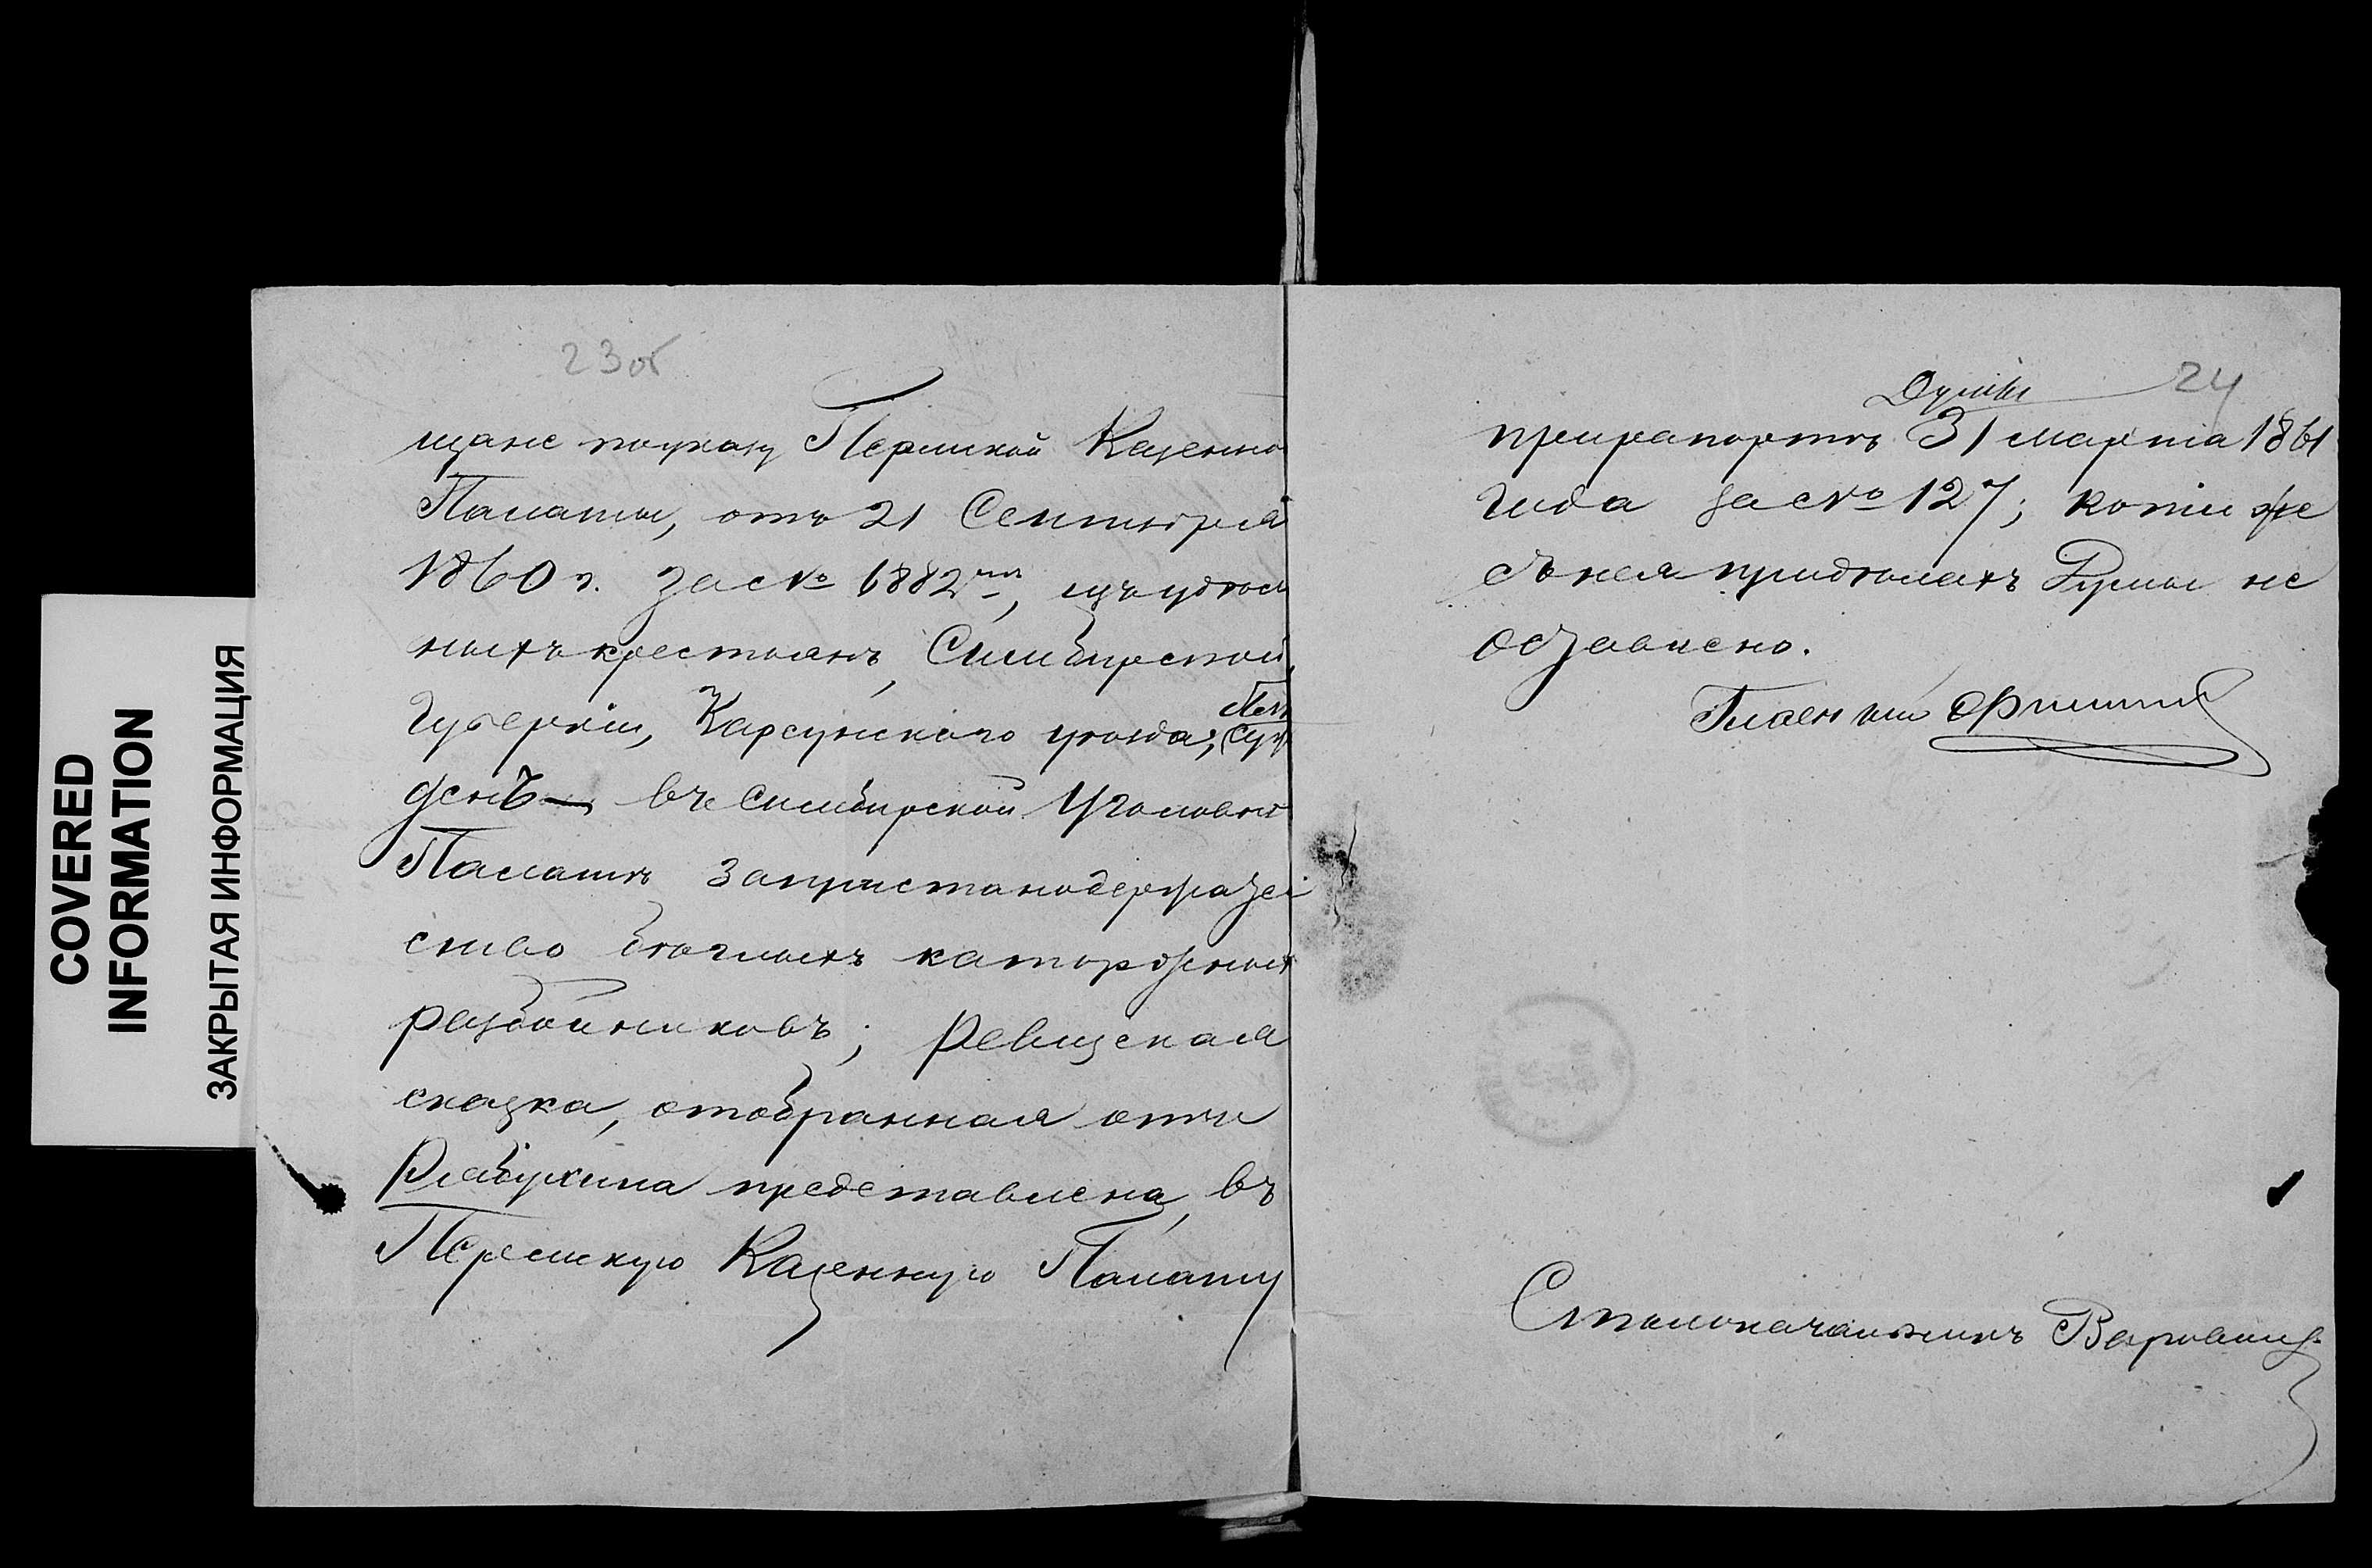 COVERED
INFORMATION
ЗАКРЫТАЯ ИНФОРМАЦИЯ
23об
щане поуказу Пермской Казенно
Палаты, отъ 21 Сентября
1860 г. за № 6882мъ, изъ удѣль
ныхъ крестьянъ, Симбирской
Губерніи, Карсунскаго уѣзда; Суж
денъ въ Симбирской Уголовной
Палатѣ запристанодержатель
ство бѣглыхъ каторжныхъ
разбойниковъ; Ревизская
сказка, отобранная отъ
Рябухина представлена въ
Пермскую Казенную Палату
24
Думы
прирапортѣ 31 марта 1861
Года за № 127; копіи же
съ нея придѣлахъ Думы не
оставлено.
Гласный
Столоначальникъ